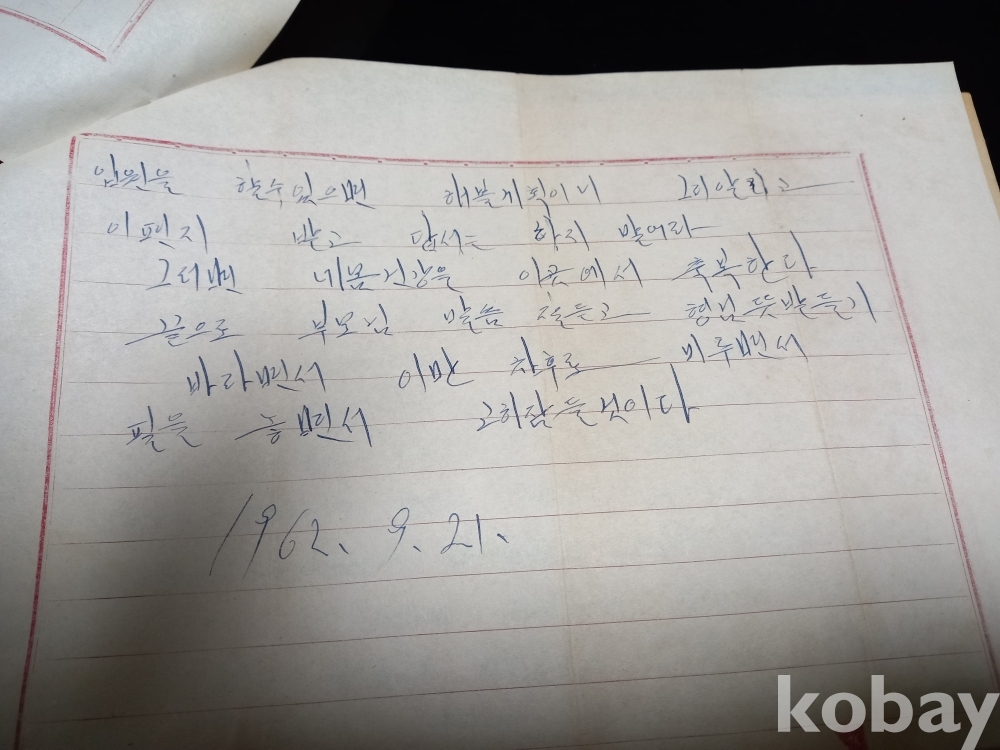 입원을 할수 있으면 해볼 계획이니 그리 알고
이 편지 받고 답서는 하지 말어라
그러면 네 몸 건강을 이곳에서 축복한다
끝으로 부모님 말씀 잘듣고 형님 뜻 받들기
바라면서 이만 차후로 미루면서
필을 놓면서
1962. 9. 21.
kobay